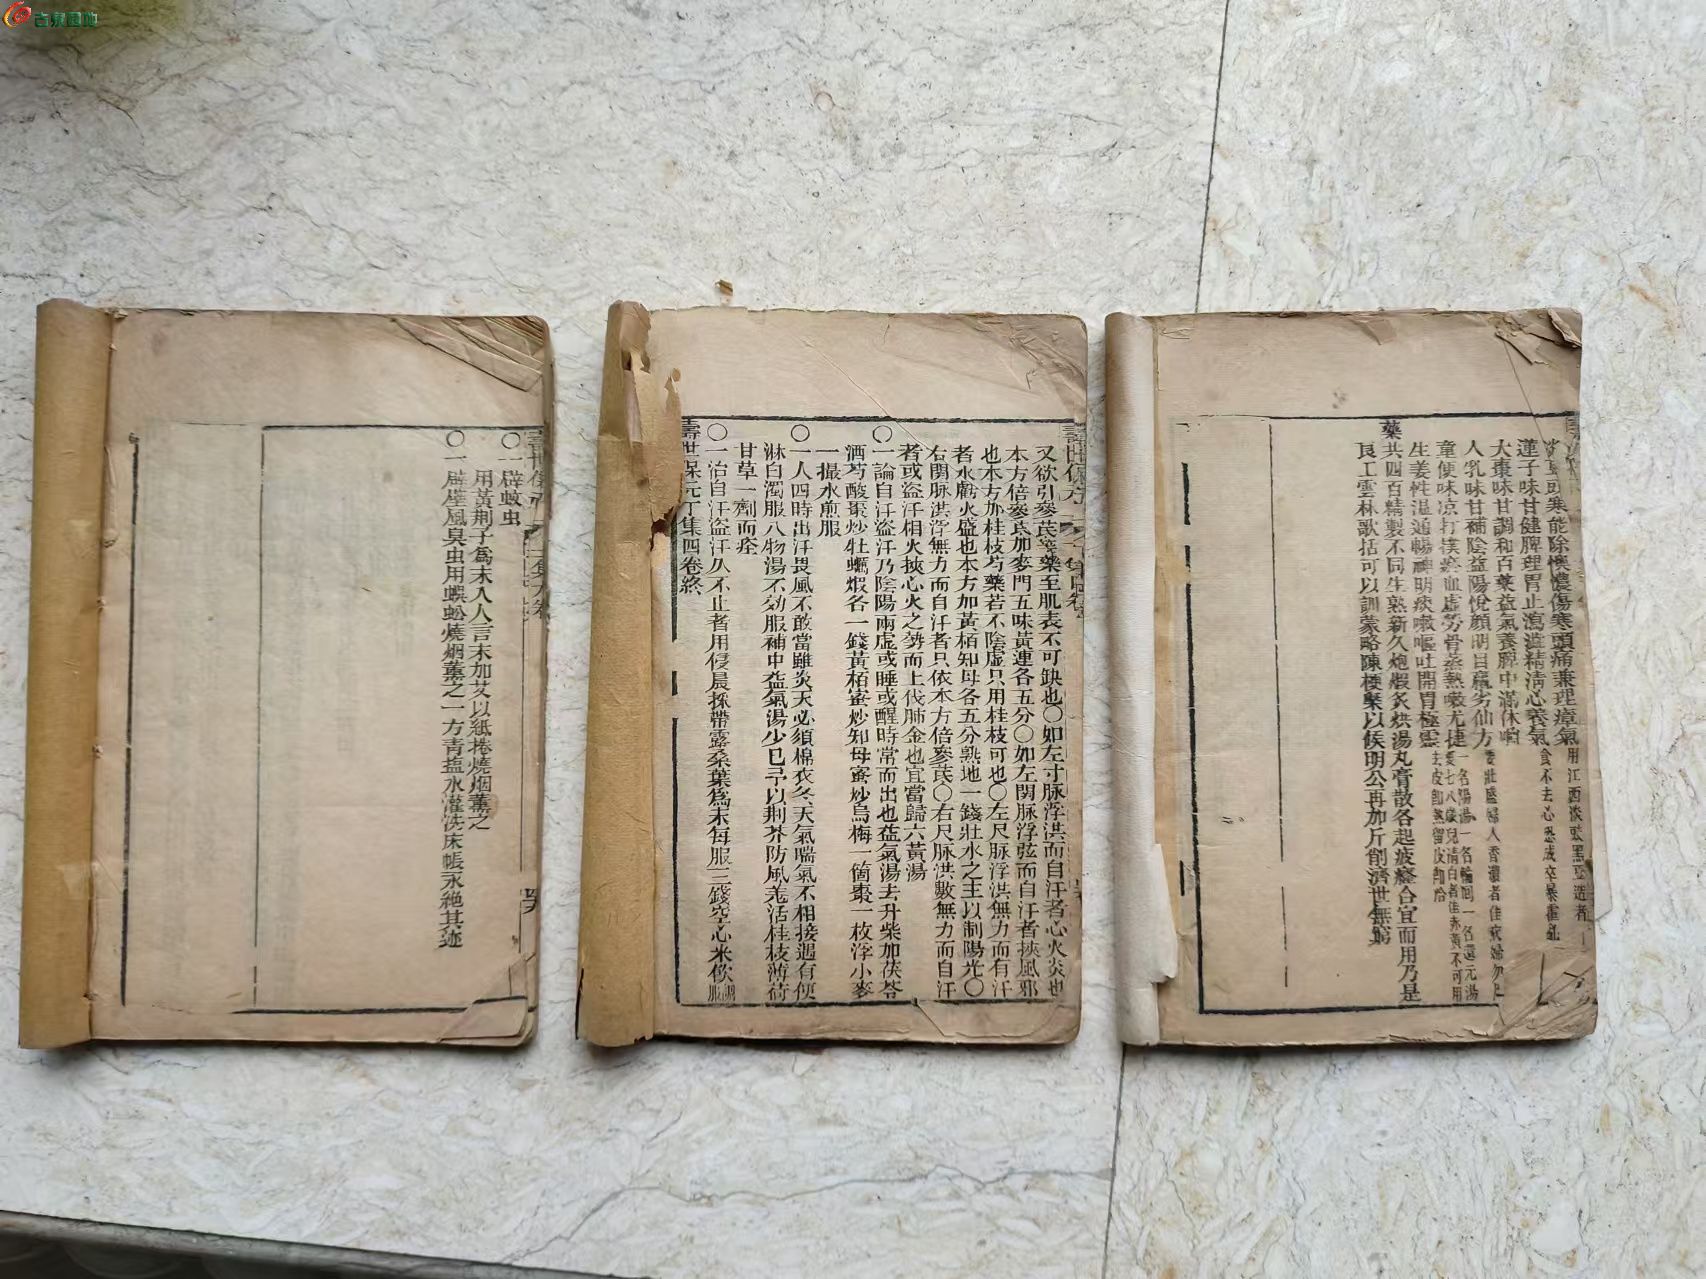 古泉園地
淡豆豉寒能除懊憹傷寒頭痛兼理瘴氣用江西淡豉黑豆造者
蓮子味甘健脾理胃止瀉澁精清心養氣食不去心恐成卒暴霍亂
大棗味甘調和百藥益氣養脾中滿休啗
人乳味甘補陰益陽悅顏明目羸劣仙方
童便味凉打撲瘀血虛勞骨蒸熱嗽尤捷
生姜性温通暢神明痰嗽嘔吐開胃極靈
藥共四百精製不同生熟新久炮煅炙烘湯丸膏散各起疲癃合宜而用乃是
良工雲林歌括可以訓蒙略陳梗槩以候明公再加斤削濟世無窮
又欲引參芪等藥至肌表不可缺也〇如左寸脉浮洪而自汗者心火炎也
本方倍參芪加麥門五味黃連各五分〇如左関脉浮弦而自汗者挾風邪
也本方加桂枝芍藥若不陰虛只用桂枝可也〇左尺脉浮洪無力而有汗
者水虧火盛也本方加黃栢知母各五分熟地一錢壯水之主以制陽光〇
右関脉洪浮無力而自汗者只依本方倍參芪〇右尺脉洪數無力而自汗
者或盜汗相火挾心火之勢而上伐肺金也宜當歸六黃湯
〇一論自汗盜汗乃陰陽兩虛或睡或醒時常而出也益氣湯去升柴加茯苓
酒芍酸棗炒牡蠣煆各一錢黃栢蜜炒知母蜜炒烏梅一箇棗一枚浮小麥
一撮水煎服
〇一人四時出汗畏風不敢當雖炎天必須棉衣冬天氣喘氣不相接遇有便
淋白濁服八物湯不効服補中益氣湯少已予以荆芥防風羗活桂枝薄荷
甘草一劑而痊
〇一治自汗盜汗久不止者用侵晨採帶露桑葉爲末每服三錢空心米飲調服
壽世保元丁集四卷終
〇一辟蚊虫
用黃荆子爲末入人言末加艾以紙捲燒烟薰之
〇一辟壁風臭虫用蜈蚣燒烟薰之一方靑塩水灌洗床帳永絶其迹